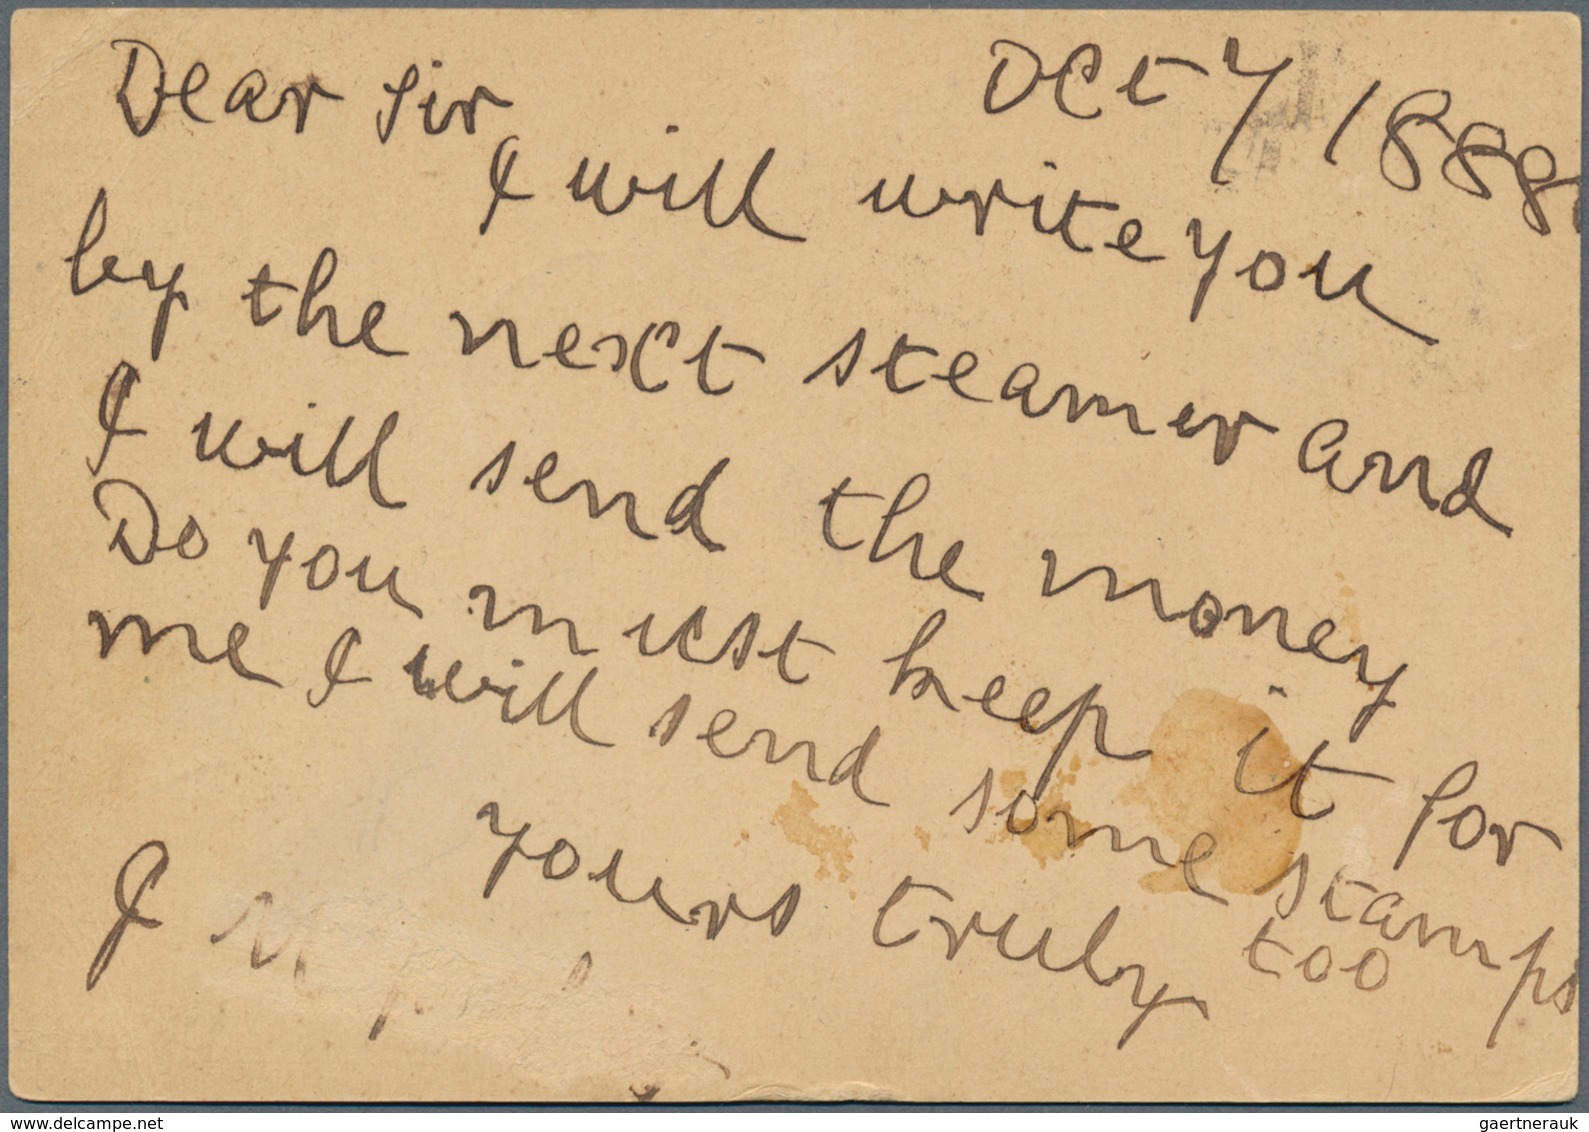 Oct 7 1888
Dear Sir,
I will write you
by the next steamer and
I will send the money
Do you must keep it for
me I will send some stamps
too
yours truly
J
www.delcampe.net
gaertnerauk